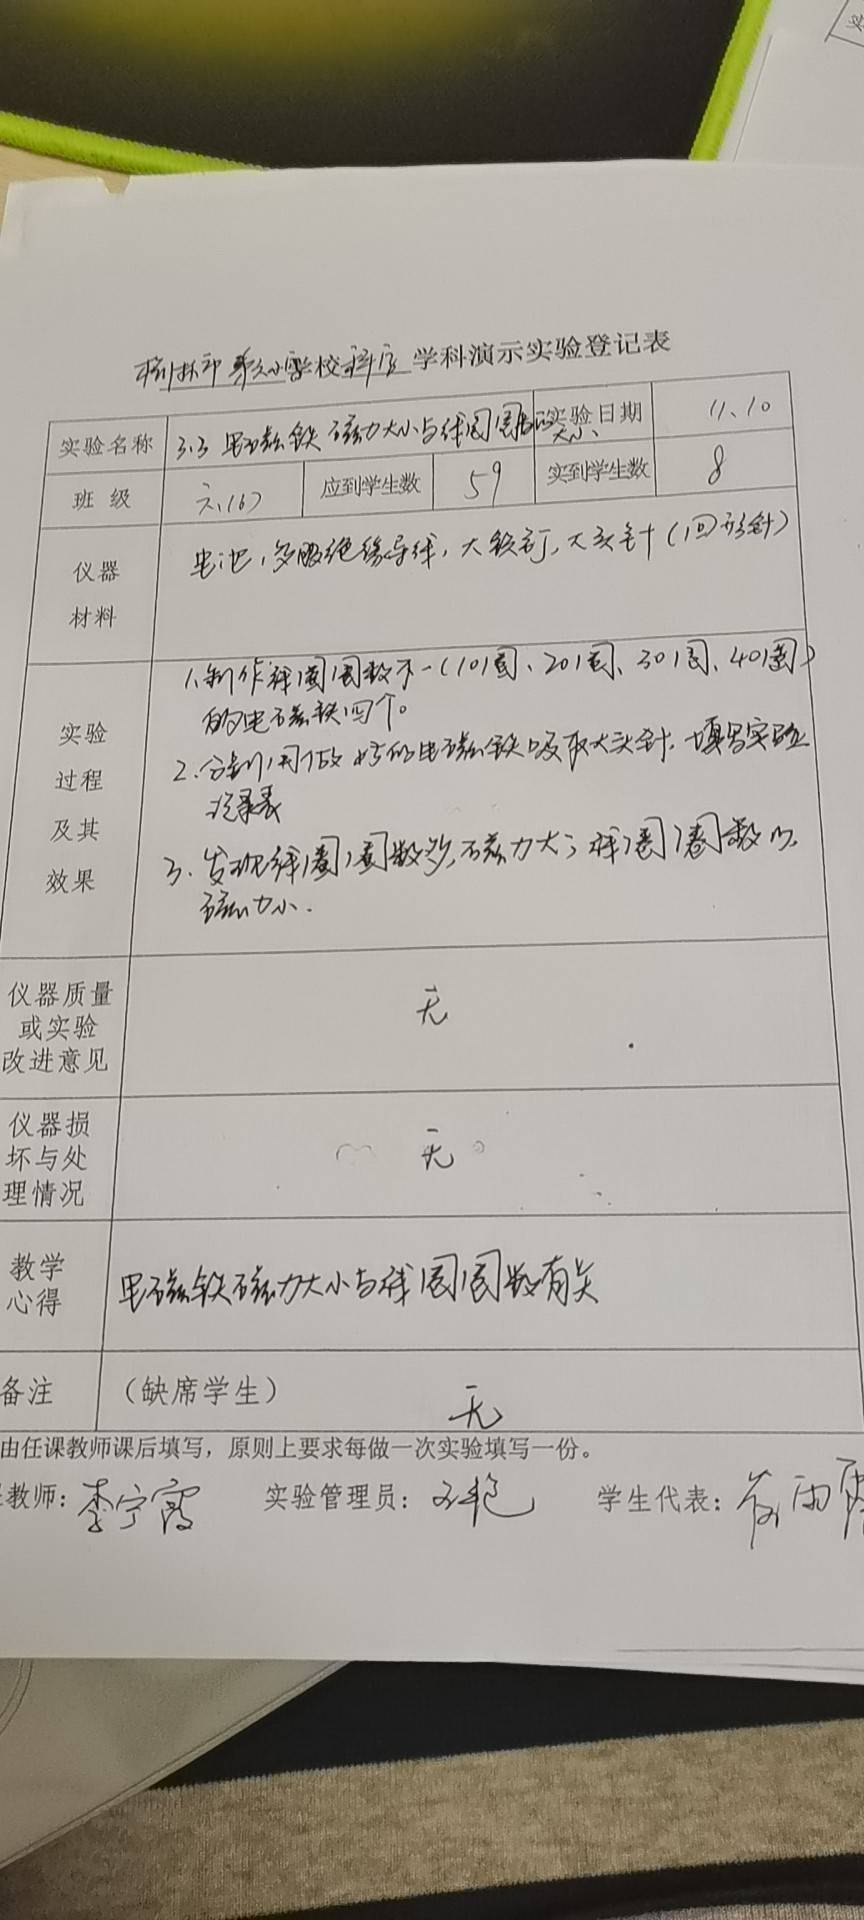 榆林市第 小学校科学学科演示实验登记表
实验名称 3.3 电磁铁磁力大小与线圈圈数的大小 实验日期 11.10
班 级 六(6) 应到学生数 59 实到学生数 8
仪器 材料 电池,多股绝缘导线,大铁钉,大头针(回形针)
实验 过程 及其 效果
1.制作线圈圈数不一(10圈、20圈、30圈、40圈)
的电磁铁四个。
2.分别用做好的电磁铁吸取大头针,填写实验
记录表
3.发现线圈圈数多,磁力大;线圈圈数少,
磁力小.
仪器质量 或实验 改进意见 无
仪器损 坏与处 理情况 无
教学 心得 电磁铁磁力大小与线圈圈数有关
备注 (缺席学生) 无
由任课教师课后填写,原则上要求每做一次实验填写一份。
教师:李宁霞 实验管理员: 学生代表: